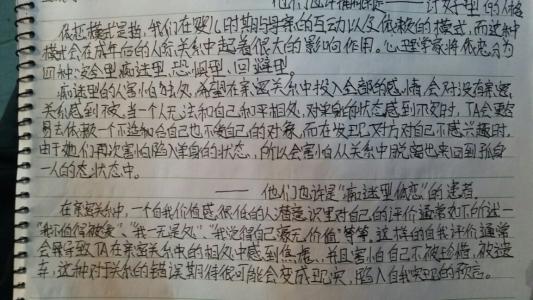 他们也许痛痛——讨好型的人格
依恋模式是指,我们在婴儿时期与母亲的互动以及依赖的模式,而这种
模式会在成年后的人际关系中起着很大的影响作用。心理学家将依恋分为
四种:安全型 痴迷型、恐惧型、回避型。
痴迷型的人害怕独处,希望在亲密关系中投入全部的感情,会对没有亲密
关系感到不安。当一个人无法和自己和平相处,对单身的状态感到不安时,TA会更容
易去依赖一个不适合自己也不爱自己的对象,而在发现对方对自己不感兴趣时,
由于她们再次害怕陷入单身的状态,所以会害怕从关系中脱离出来回到孤身
一人的状态中。
——他们也许是“痴迷型依恋”的患者。
在亲密关系中,一个自我价值感很低的人,潜意识里对自己的评价通常如下所述—
“我不值得被爱”、“我一无是处”、“我觉得自己毫无价值”等等。这样的自我评价通常
会导致TA在亲密关系中的相处中感到焦虑,并且害怕自己不被珍惜,被遗
弃,这种对于关系的错误期待很可能会变成现实,陷入自我实现的预言。